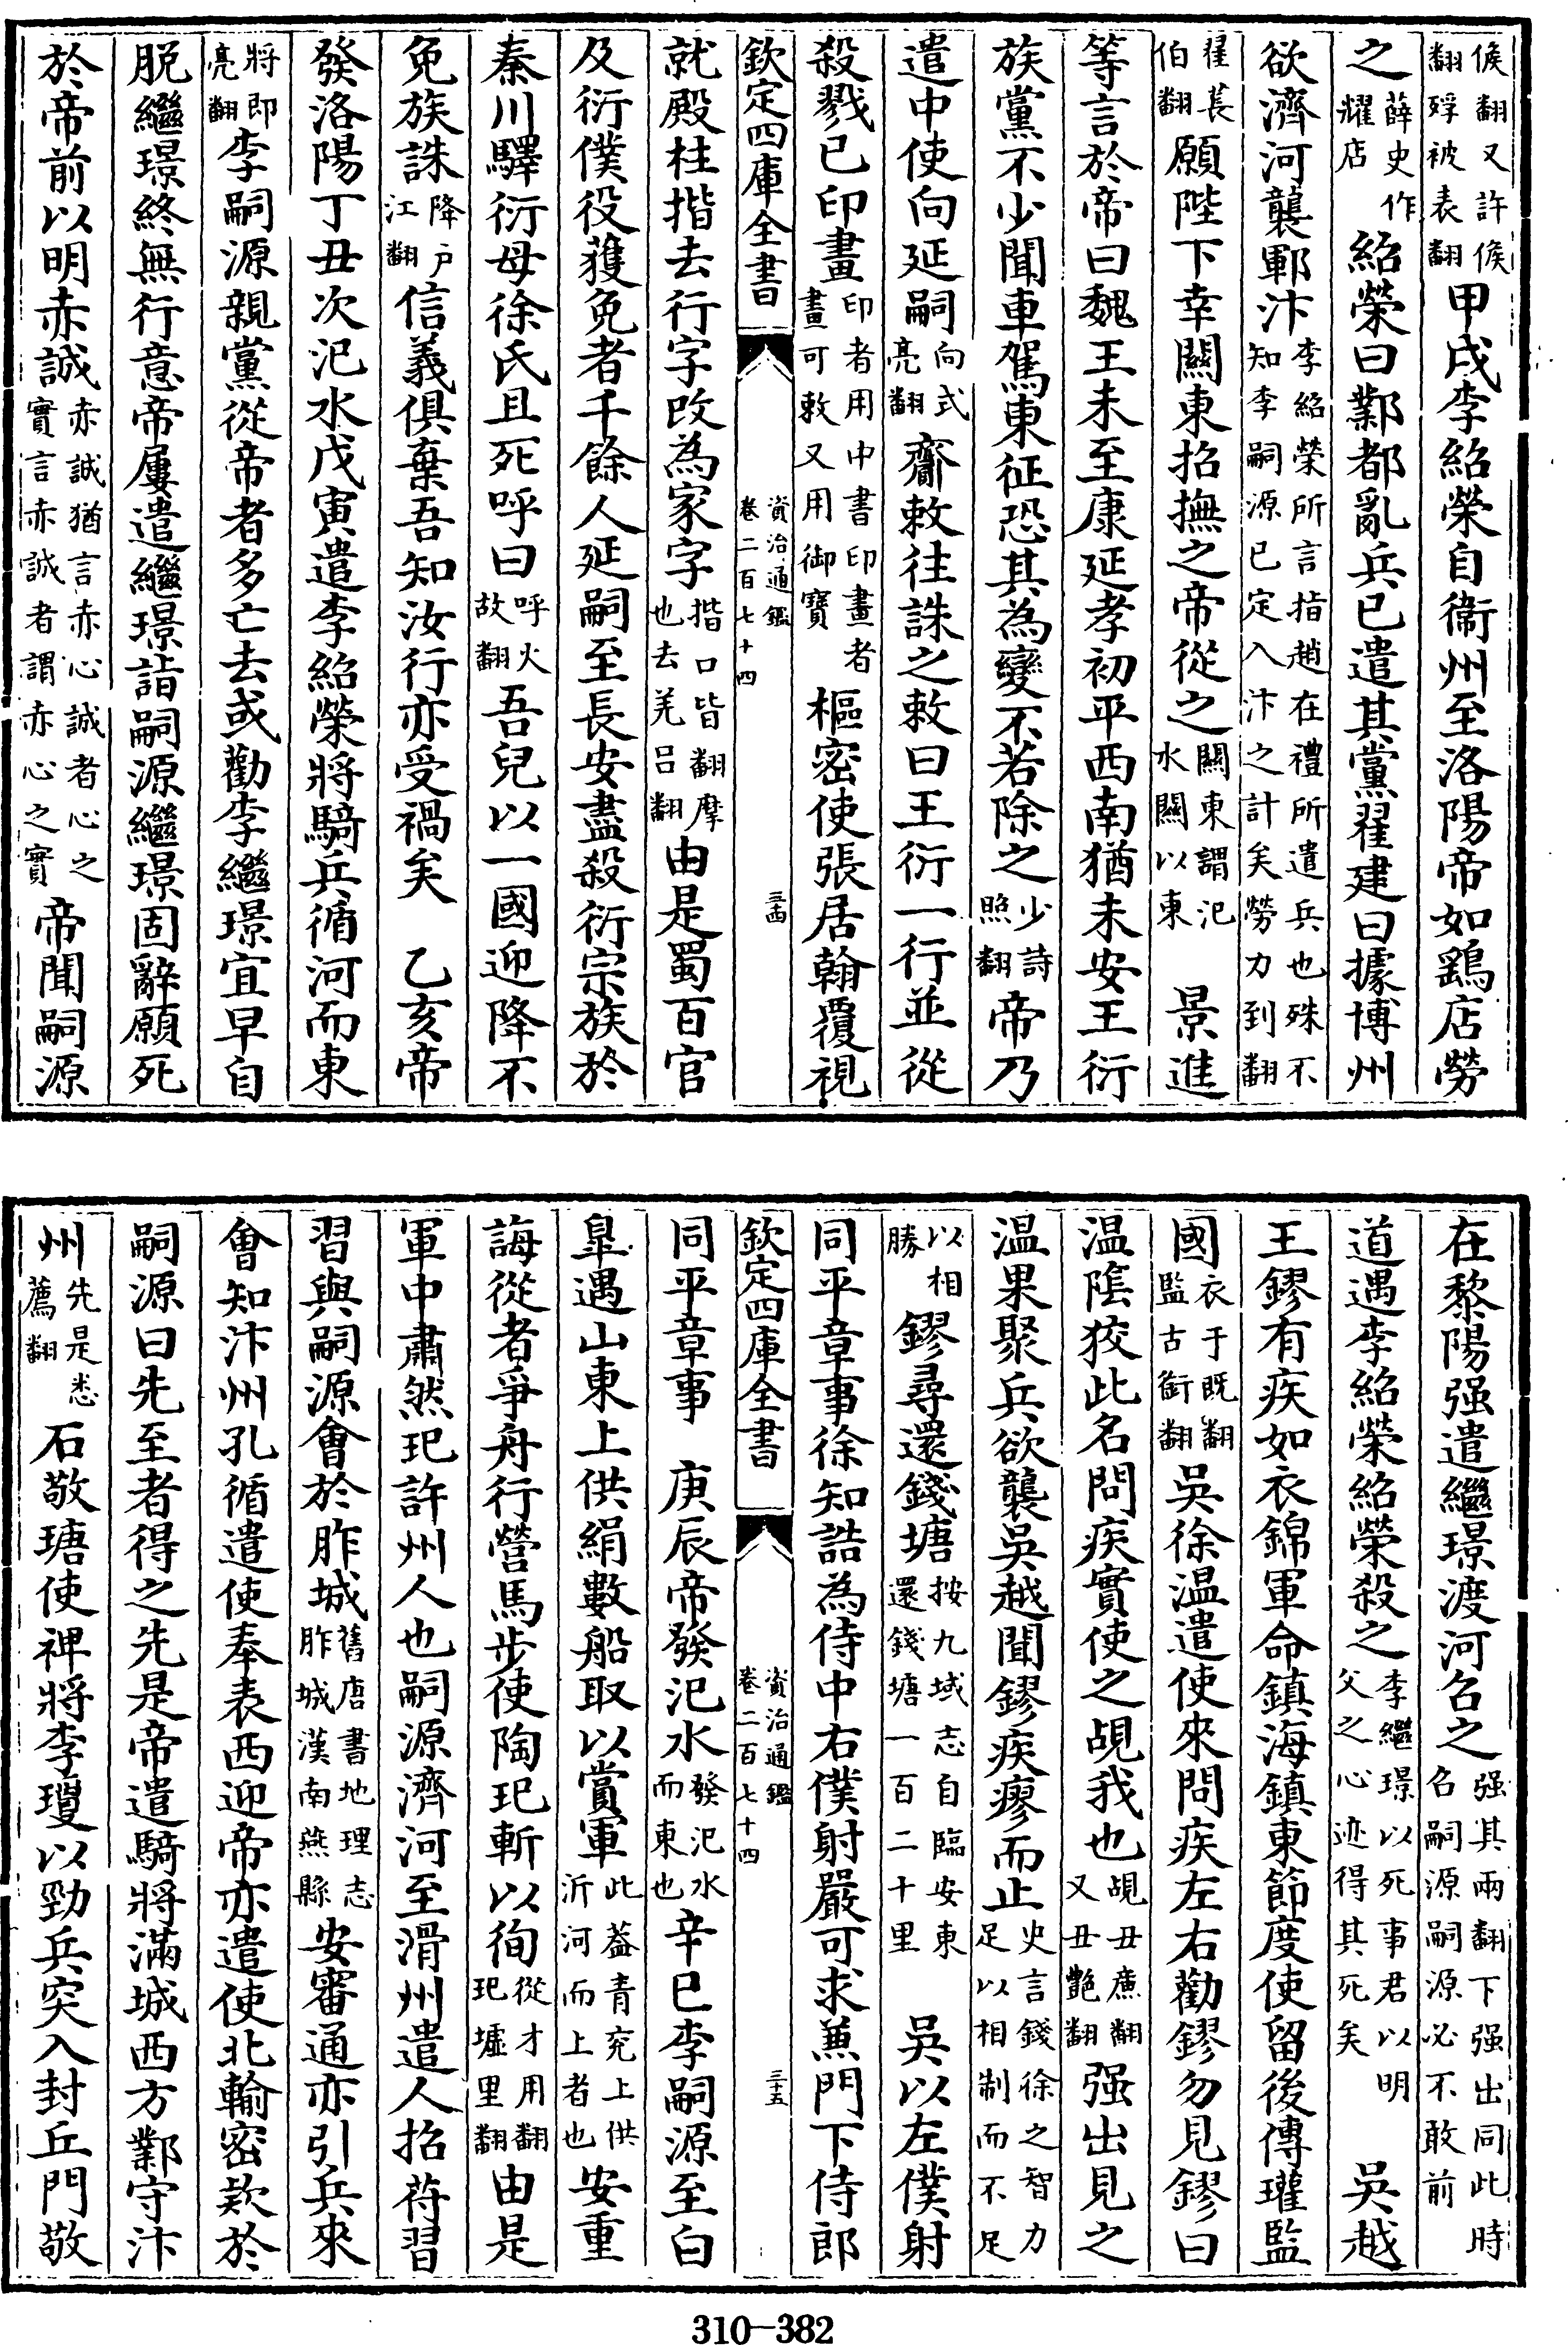 㑨翻又許㑨翻殍被表翻甲戌李紹榮自衞州至洛陽帝如鷂店勞
之薛史作耀店紹榮曰鄴都亂兵已遣其黨翟建曰據博州
欲濟河襲鄆汴李紹榮所言指趙在禮所遣兵也殊不知李嗣源已定入汴之計矣勞力到翻
翟萇伯翻願陛下幸關東招撫之帝從之關東謂汜水關以東 景進
等言於帝曰魏王未至康延孝初平西南猶未安王衍
族黨不少聞車駕東征恐其為變不若除之少詩照翻帝乃
遣中使向延嗣向式亮翻齎敕往誅之敕曰王衍一行並從
殺戮已印畫印者用中書印畫者畫可敕又用御寶樞密使張居翰覆視
欽定四庫全書 資治通鑑卷二百七十四 三十四
就殿柱揩去行字改為家字揩口皆翻摩也去羌呂翻由是蜀百官
及衍僕役獲免者千餘人延嗣至長安盡殺衍宗族於
秦川驛衍母徐氏且死呼曰呼火故翻吾兒以一國迎降不
免族誅降户江翻信義俱棄吾知汝行亦受禍矣 乙亥帝
發洛陽丁丑次汜水戊寅遣李紹榮將騎兵循河而東
將即亮翻李嗣源親黨從帝者多亡去或勸李繼璟宜早自
脱繼璟終無行意帝屢遣繼璟詣嗣源繼璟固辭願死
於帝前以明赤誠赤誠猶言赤心誠者心之實言赤誠者謂赤心之實帝聞嗣源
在黎陽强遣繼璟渡河召之强其兩翻下强出同此時召嗣源嗣源必不敢前
道遇李紹榮紹榮殺之李繼璟以死事君以明父之心迹得其死矣 吳越
王鏐有疾如衣錦軍命鎮海鎮東節度使留後傳瓘監
國衣于既翻監古銜翻吳徐温遣使來問疾左右勸鏐勿見鏐曰
温隂狡此名問疾實使之覘我也覘丑亷翻又丑艷翻强出見之
温果聚兵欲襲吳越聞鏐疾瘳而止史言錢徐之智力足以相制而不足
以相勝鏐尋還錢塘按九域志自臨安東還錢塘一百二十里 吳以左僕射
同平章事徐知誥為侍中右僕射嚴可求兼門下侍郎
欽定四庫全書 資治通鑑卷二百七十四 三十五
同平章事 庚辰帝發汜水發汜水而東也辛巳李嗣源至白
臯遇山東上供絹數船取以賞軍此葢青兖上供沂河而上者也安重
誨從者爭舟行營馬步使陶玘斬以徇從才用翻玘墟里翻由是
軍中肅然玘許州人也嗣源濟河至滑州遣人招苻習
習與嗣源會於胙城舊唐書地理志胙城漢南燕縣安審通亦引兵來
會知汴州孔循遣使奉表西迎帝亦遣使北輸密款於
嗣源曰先至者得之先是帝遣騎將滿城西方鄴守汴
州先是悉薦翻石敬瑭使裨將李瓊以勁兵突入封丘門敬
310-382